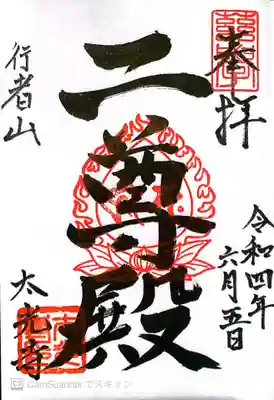 奉拝
令和四年
六月五日
二尊殿
行者山
太光寺
CamScanner でスキャン